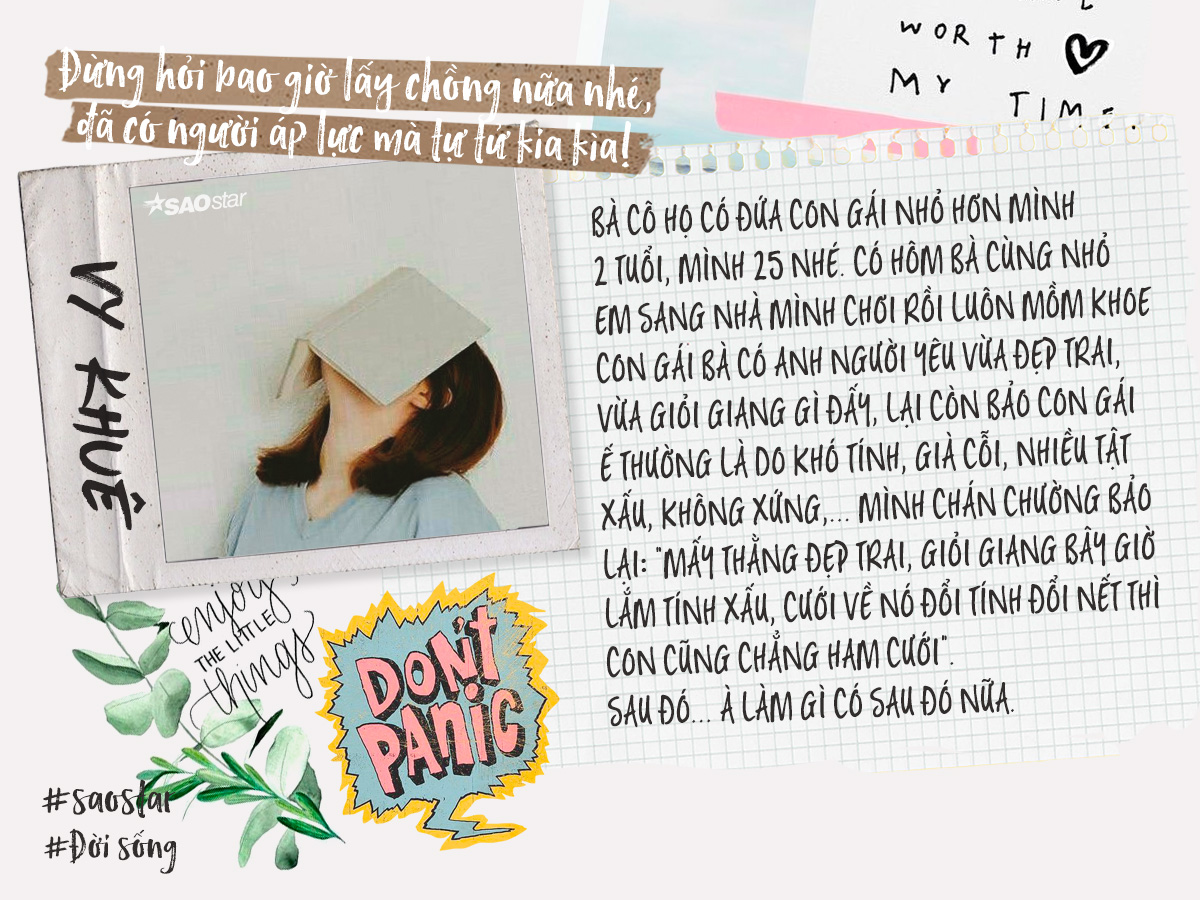 WORTH
MY TIME.
Đừng hỏi bao giờ lấy chồng nữa nhé,
đã có người áp lực mà tự tử kia kìa!
SAOstar
VY KHUÊ
BÀ CÔ HỌ CÓ ĐỨA CON GÁI NHỎ HƠN MÌNH
2 TUỔI, MÌNH 25 NHÉ. CÓ HÔM BÀ CÙNG NHỎ
EM SANG NHÀ MÌNH CHƠI RỒI LUÔN MỒM KHOE
CON GÁI BÀ CÓ ANH NGƯỜI YÊU VỪA ĐẸP TRAI,
VỪA GIỎI GIANG GÌ ĐẤY, LẠI CÒN BẢO CON GÁI
Ế THƯỜNG LÀ DO KHÓ TÍNH, GIÀ CỖI, NHIỀU TẬT
XẤU, KHÔNG XỨNG,... MÌNH CHÁN CHƯỜNG BẢO
LẠI: "MẤY THẰNG ĐẸP TRAI, GIỎI GIANG BÂY GIỜ
LẮM TÍNH XẤU, CƯỚI VỀ NÓ ĐỔI TÍNH ĐỔI NẾT THÌ
CON CŨNG CHẲNG HAM CƯỚI".
SAU ĐÓ... À LÀM GÌ CÓ SAU ĐÓ NỮA.
enjoy
THE LITTLE
things
DON'T
PANIC
#saostar
#Đời sống